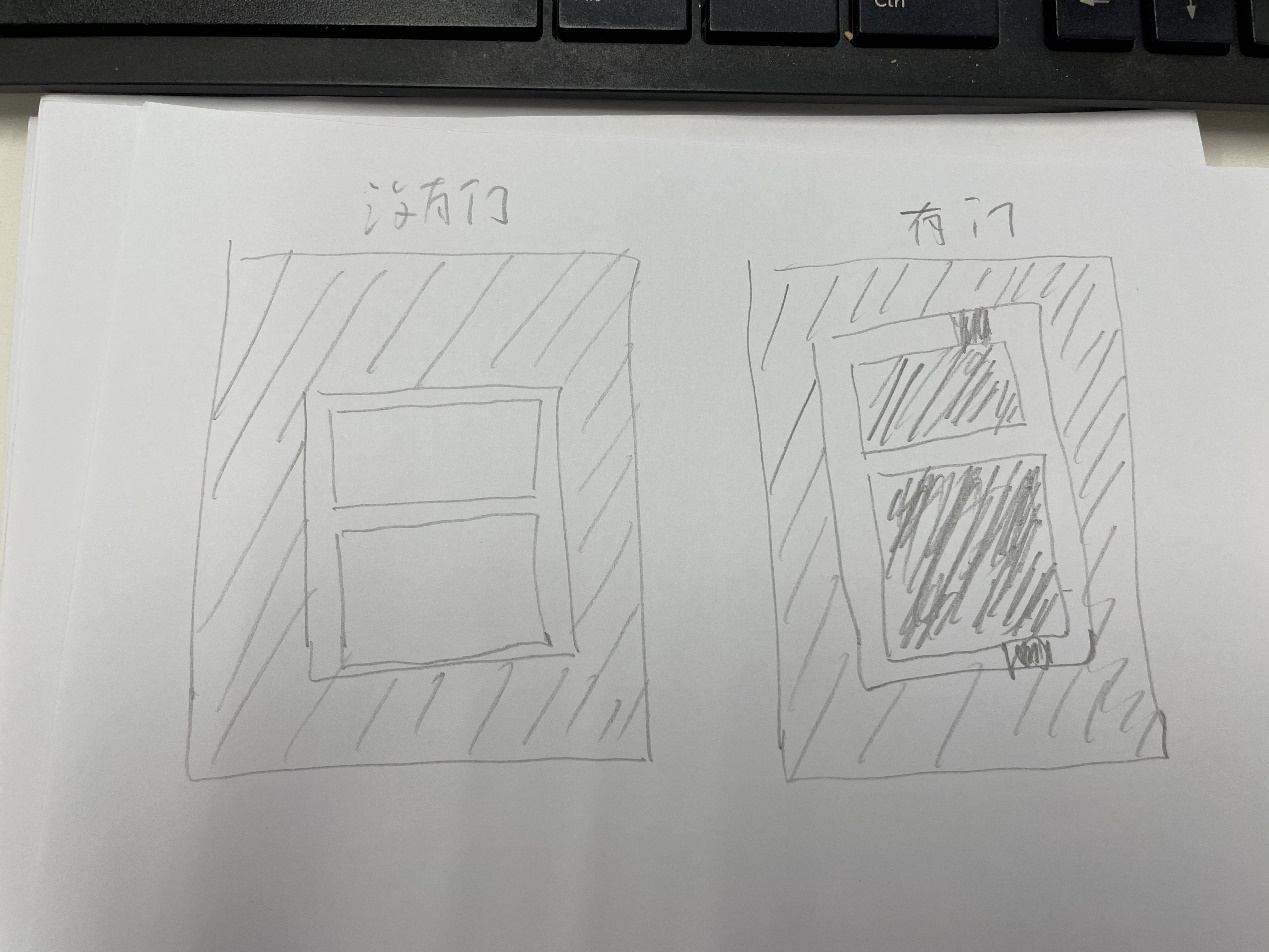 Ctrl
没有们
有门